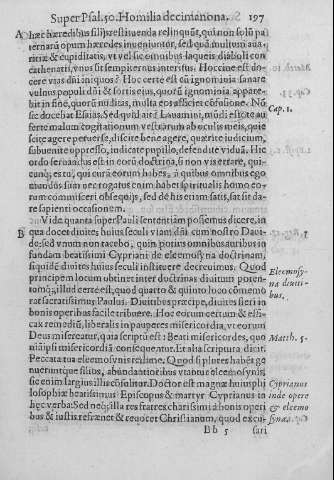 Super Psal. 50. Homilia decimanona. 197
A hæc hæredibus filijs restituenda relinqūt, qui non solū pa
ternarū opum hæredes inueniuntur, sed quā multum aua-
ritiæ & cupiditatis, vt vel sic omnibus laqueis diaboli con
cathenati, vnus sit semper unus interitus. Hoccine est do-
cere vias dn̄i iniquos? Hoc certe est cū ignominia sanare
vulnus populi dn̄i & sortis eius, quorū ignominia appare-
bit in fine, quorū nuditas, multa eos afficiet cōfusione. Nō
sic docebat Esaias. Sed quid ait? Lauamini, mūdi estote au
ferte malum cogitationum vestrarum ab oculis meis, quie
scite agere peruerse, discite bene agere, quærite iudicium,
subuenite oppresso, iudicate pupillo, defendite viduā. Hic
ordo seruandus est in eorū doctrina, si non vis errare, qui-
cunq; es tu, qui curā eorum habes, à quibus omnibus ego
mundus sum nec rogatus enim habet spiritualis homo eo-
rum commisceri obsequijs, sed de his etiam satis, sat sit da-
re sapienti occasionem.
Vide quanta super Pauli sententiam possemus dicere, in
B qua docet diuites huius seculi viam dn̄i cum nostro Daui-
de: sed vnum non tacebo, quin potius omnibus auribus in
fundam beatissimi Cypriani de eleemosyna doctrinam,
siquidē diuites huius seculi instituere decreuimus. Quod
principem locum obtinet inter doctrinas diuitum poten-
tumq́; illud certe est, quod quarto & quinto loco cōmemo
rat sacratissimus Paulus. Diuitibus præcipe, diuites fieri in
bonis operibus facile tribuere. Hoc eorum certum & effi-
cax remediū, liberalis in pauperes misericordia, vt eorum
Deus misereatur, quia scriptū est: Beati misericordes, quo
niā ipsi misericordiā consequētur. Et alia scriptura dicit:
Peccata tua eleemosynis redime. Quod si plures habēt ge
nueruntque filios, abundantioribus vtantur eleemosynis,
sic enim largius illis cōsulitor. Doctor est magnæ huius phi
losophiæ beatissimus Episcopus & martyr Cyprianus in
hęc verba: Sed neq; illa res fratres charissimi à bonis operi
bus & iustis refrænet & reuocet Christianum, quod excu-
Bb 5 sari
Cap. 1.
Eleemosy-
na diuiti-
bus.
Matth. 5.
Cyprianus
inde opere
& eleemo
synæ.